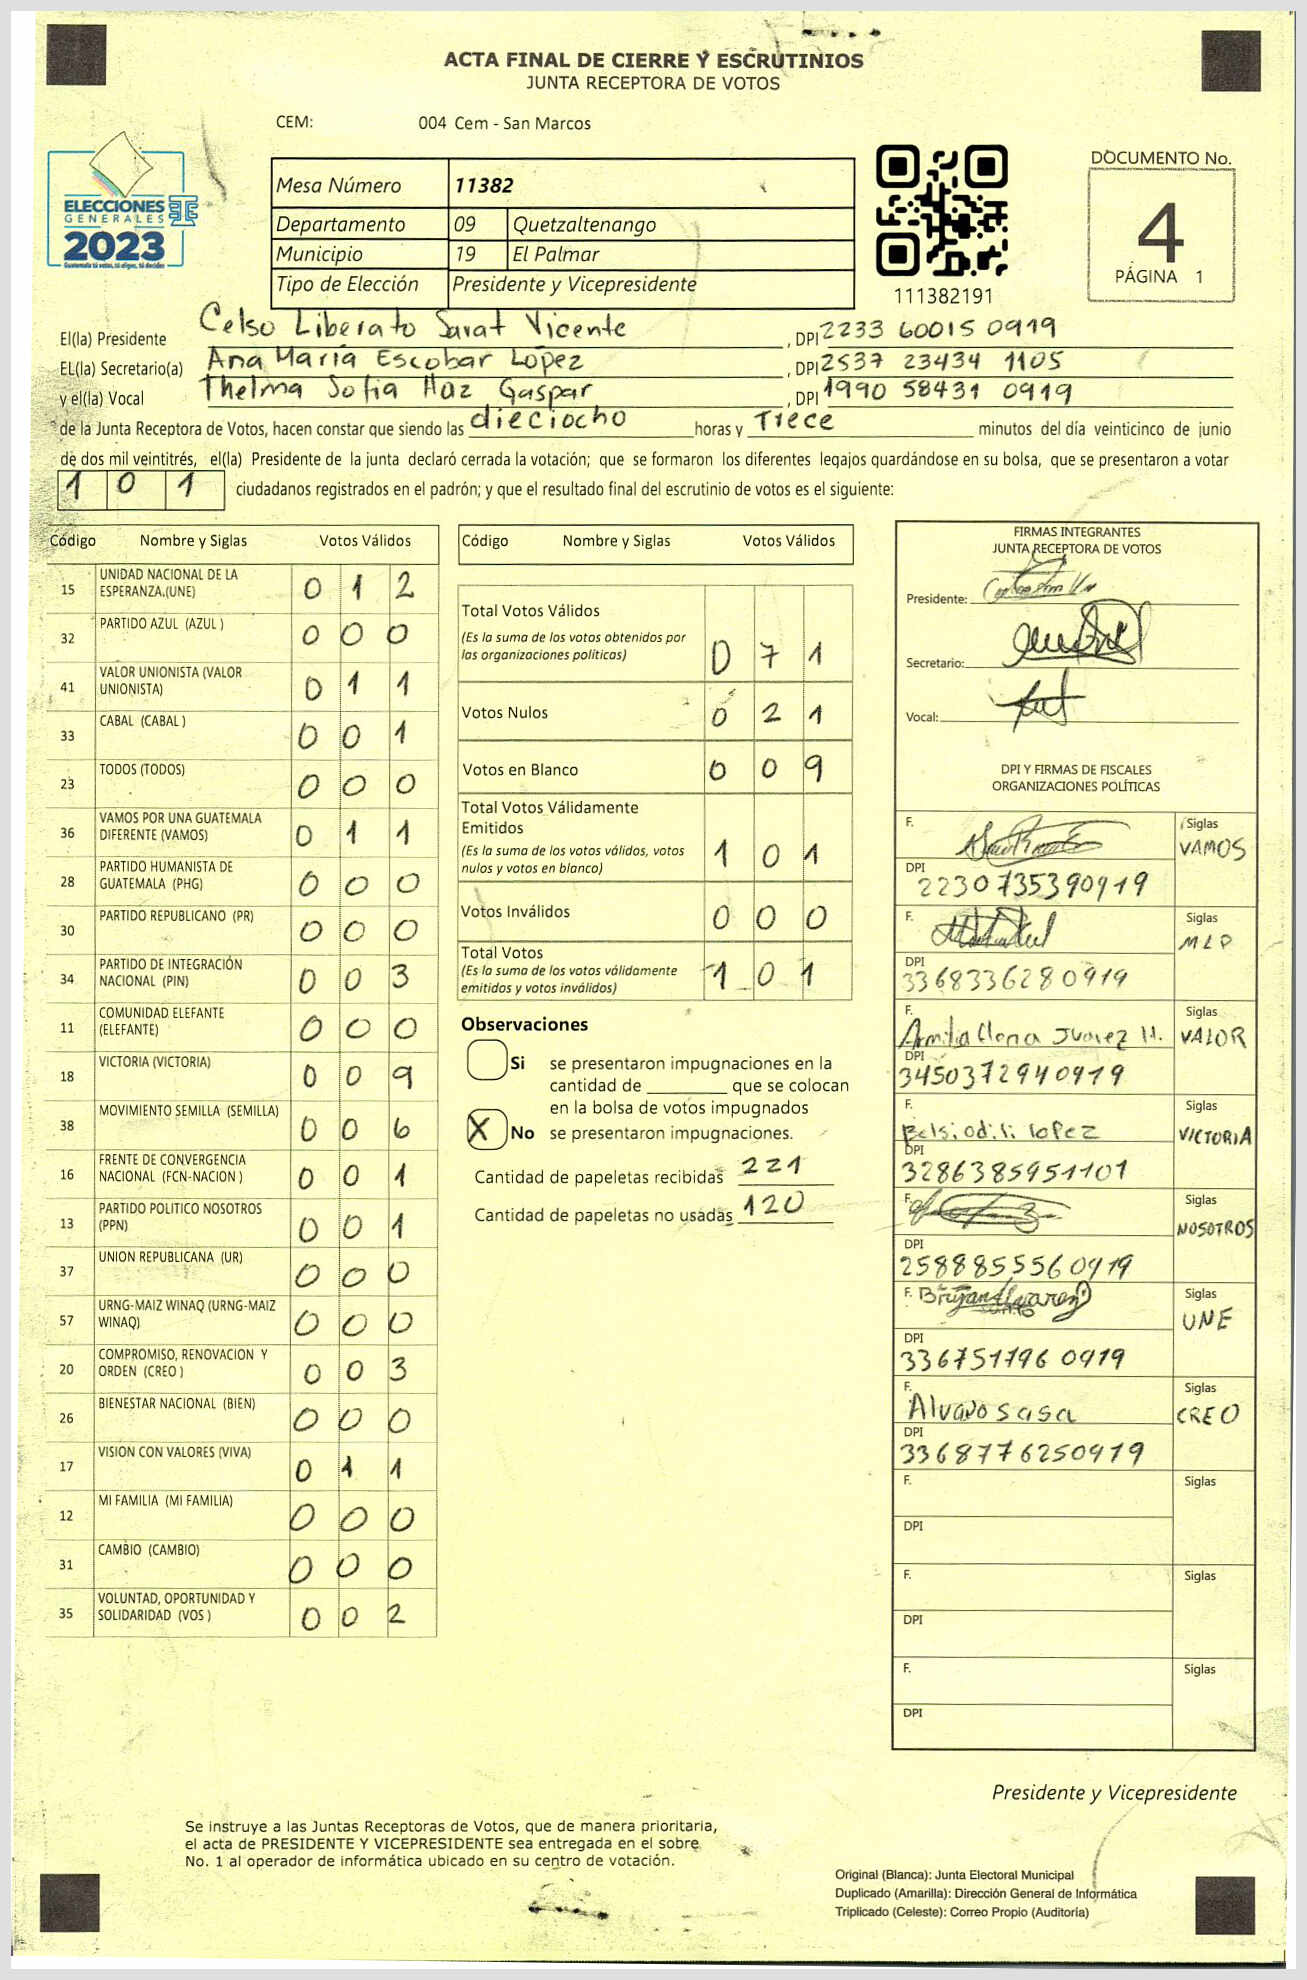 ACTA FINAL DE CIERRE Y ESCRUTINIOS
JUNTA RECEPTORA DE VOTOS
CEM: 004 Cem - San Marcos
ELECCIONES
GENERALES
2023
Guatemala tú votas, tú eliges, tú decides
Mesa Número 11382
Departamento 09 Quetzaltenango
Municipio 19 El Palmar
Tipo de Elección Presidente y Vicepresidente
111382191
DOCUMENTO No.
4
PÁGINA 1
El(la) Presidente Celso Liberato Sarat Vicente, DPI 2233 60015 0919
EL(la) Secretario(a) Ana María Escobar López, DPI 2537 23434 1105
y el(la) Vocal Thelma Sofia Haz Gaspar, DPI 1990 58431 0919
de la Junta Receptora de Votos, hacen constar que siendo las dieciocho horas y Trece minutos del día veinticinco de junio
de dos mil veintitrés, el(la) Presidente de la junta declaró cerrada la votación; que se formaron los diferentes legajos guardándose en su bolsa, que se presentaron a votar
101 ciudadanos registrados en el padrón; y que el resultado final del escrutinio de votos es el siguiente:
Código Nombre y Siglas Votos Válidos
15 UNIDAD NACIONAL DE LA ESPERANZA.(UNE) 012
32 PARTIDO AZUL (AZUL ) 000
41 VALOR UNIONISTA (VALOR UNIONISTA) 011
33 CABAL (CABAL ) 001
23 TODOS (TODOS) 000
36 VAMOS POR UNA GUATEMALA DIFERENTE (VAMOS) 011
28 PARTIDO HUMANISTA DE GUATEMALA (PHG) 000
30 PARTIDO REPUBLICANO (PR) 000
34 PARTIDO DE INTEGRACIÓN NACIONAL (PIN) 003
11 COMUNIDAD ELEFANTE (ELEFANTE) 000
18 VICTORIA (VICTORIA) 009
38 MOVIMIENTO SEMILLA (SEMILLA) 006
16 FRENTE DE CONVERGENCIA NACIONAL (FCN-NACION ) 001
13 PARTIDO POLITICO NOSOTROS (PPN) 001
37 UNION REPUBLICANA (UR) 000
57 URNG-MAIZ WINAQ (URNG-MAIZ WINAQ) 000
20 COMPROMISO, RENOVACION Y ORDEN (CREO ) 003
26 BIENESTAR NACIONAL (BIEN) 000
17 VISION CON VALORES (VIVA) 011
12 MI FAMILIA (MI FAMILIA) 000
31 CAMBIO (CAMBIO) 000
35 VOLUNTAD, OPORTUNIDAD Y SOLIDARIDAD (VOS ) 002
Código Nombre y Siglas Votos Válidos
Total Votos Válidos 071
(Es la suma de los votos obtenidos por
las organizaciones políticas)
Votos Nulos 021
Votos en Blanco 009
Total Votos Válidamente
Emitidos 101
(Es la suma de los votos válidos, votos
nulos y votos en blanco)
Votos Inválidos 000
Total Votos 101
(Es la suma de los votos válidamente
emitidos y votos inválidos)
Observaciones
Si se presentaron impugnaciones en la
cantidad de ______ que se colocan
en la bolsa de votos impugnados
X No se presentaron impugnaciones.
Cantidad de papeletas recibidas 221
Cantidad de papeletas no usadas 120
FIRMAS INTEGRANTES
JUNTA RECEPTORA DE VOTOS
Presidente:
Secretario:
Vocal:
DPI Y FIRMAS DE FISCALES
ORGANIZACIONES POLÍTICAS
F. Siglas VAMOS
DPI 2230735390919
F. Siglas MLP
DPI 3368336280919
F. Juarez H. Siglas VALOR
DPI 3450372940919
F. Lopez Siglas VICTORIA
DPI 3286385951101
F. Siglas NOSOTROS
DPI 2588855560919
F. Siglas UNE
DPI 336751796 0919
F. Alvaro sasa Siglas CREO
DPI 3368776250919
F. Siglas
DPI
F. Siglas
DPI
F. Siglas
DPI
Presidente y Vicepresidente
Se instruye a las Juntas Receptoras de Votos, que de manera prioritaria,
el acta de PRESIDENTE Y VICEPRESIDENTE sea entregada en el sobre
No. 1 al operador de informática ubicado en su centro de votación.
Original (Blanca): Junta Electoral Municipal
Duplicado (Amarilla): Dirección General de Informática
Triplicado (Celeste): Correo Propio (Auditoría)